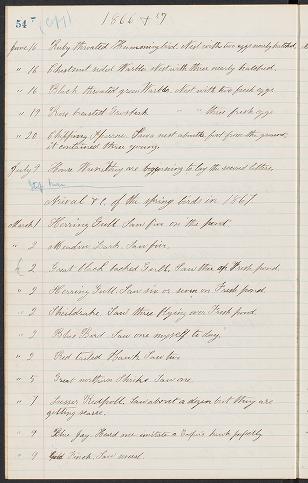 54
1866 & '7
June 16. Ruby throated Humming bird. Nest with two eggs nearly hatched.
" 16 Chestnut sided Warbler. Nest with three nearly hatched.
" 16 Black throated green Warbler. Nest with two fresh eggs
" 19 Rose breasted Grosbeak " " three fresh eggs
" 20. Chipping Sparrow. Saw a nest about feet from the ground,
it contained three young.
July 9. House Wrens they are beginning to lay the second litters.
Arrival &c. of the spring birds in 1867.
March 1 Herring Gull. Saw five on the pond.
" 2 Meadow Lark. Saw five.
" 2 Great black backed Gull. Saw three Fresh pond.
" 2 Herring Gull. Saw six or seven on Fresh pond
" 2 Sheldrake. Saw three flying over Fresh pond.
" 2 Blue Bird. Saw one myself to day.
" 2 Red tailed Hawk. Saw two
" 5 Great northern Shrike. Saw one.
" 7 Lesser Redpoll. Saw about a dozen but they are
getting scarce.
" 9 Blue Jay. Heard one imitate a hawk perfectly
" 9 Gold Finch. Saw several.